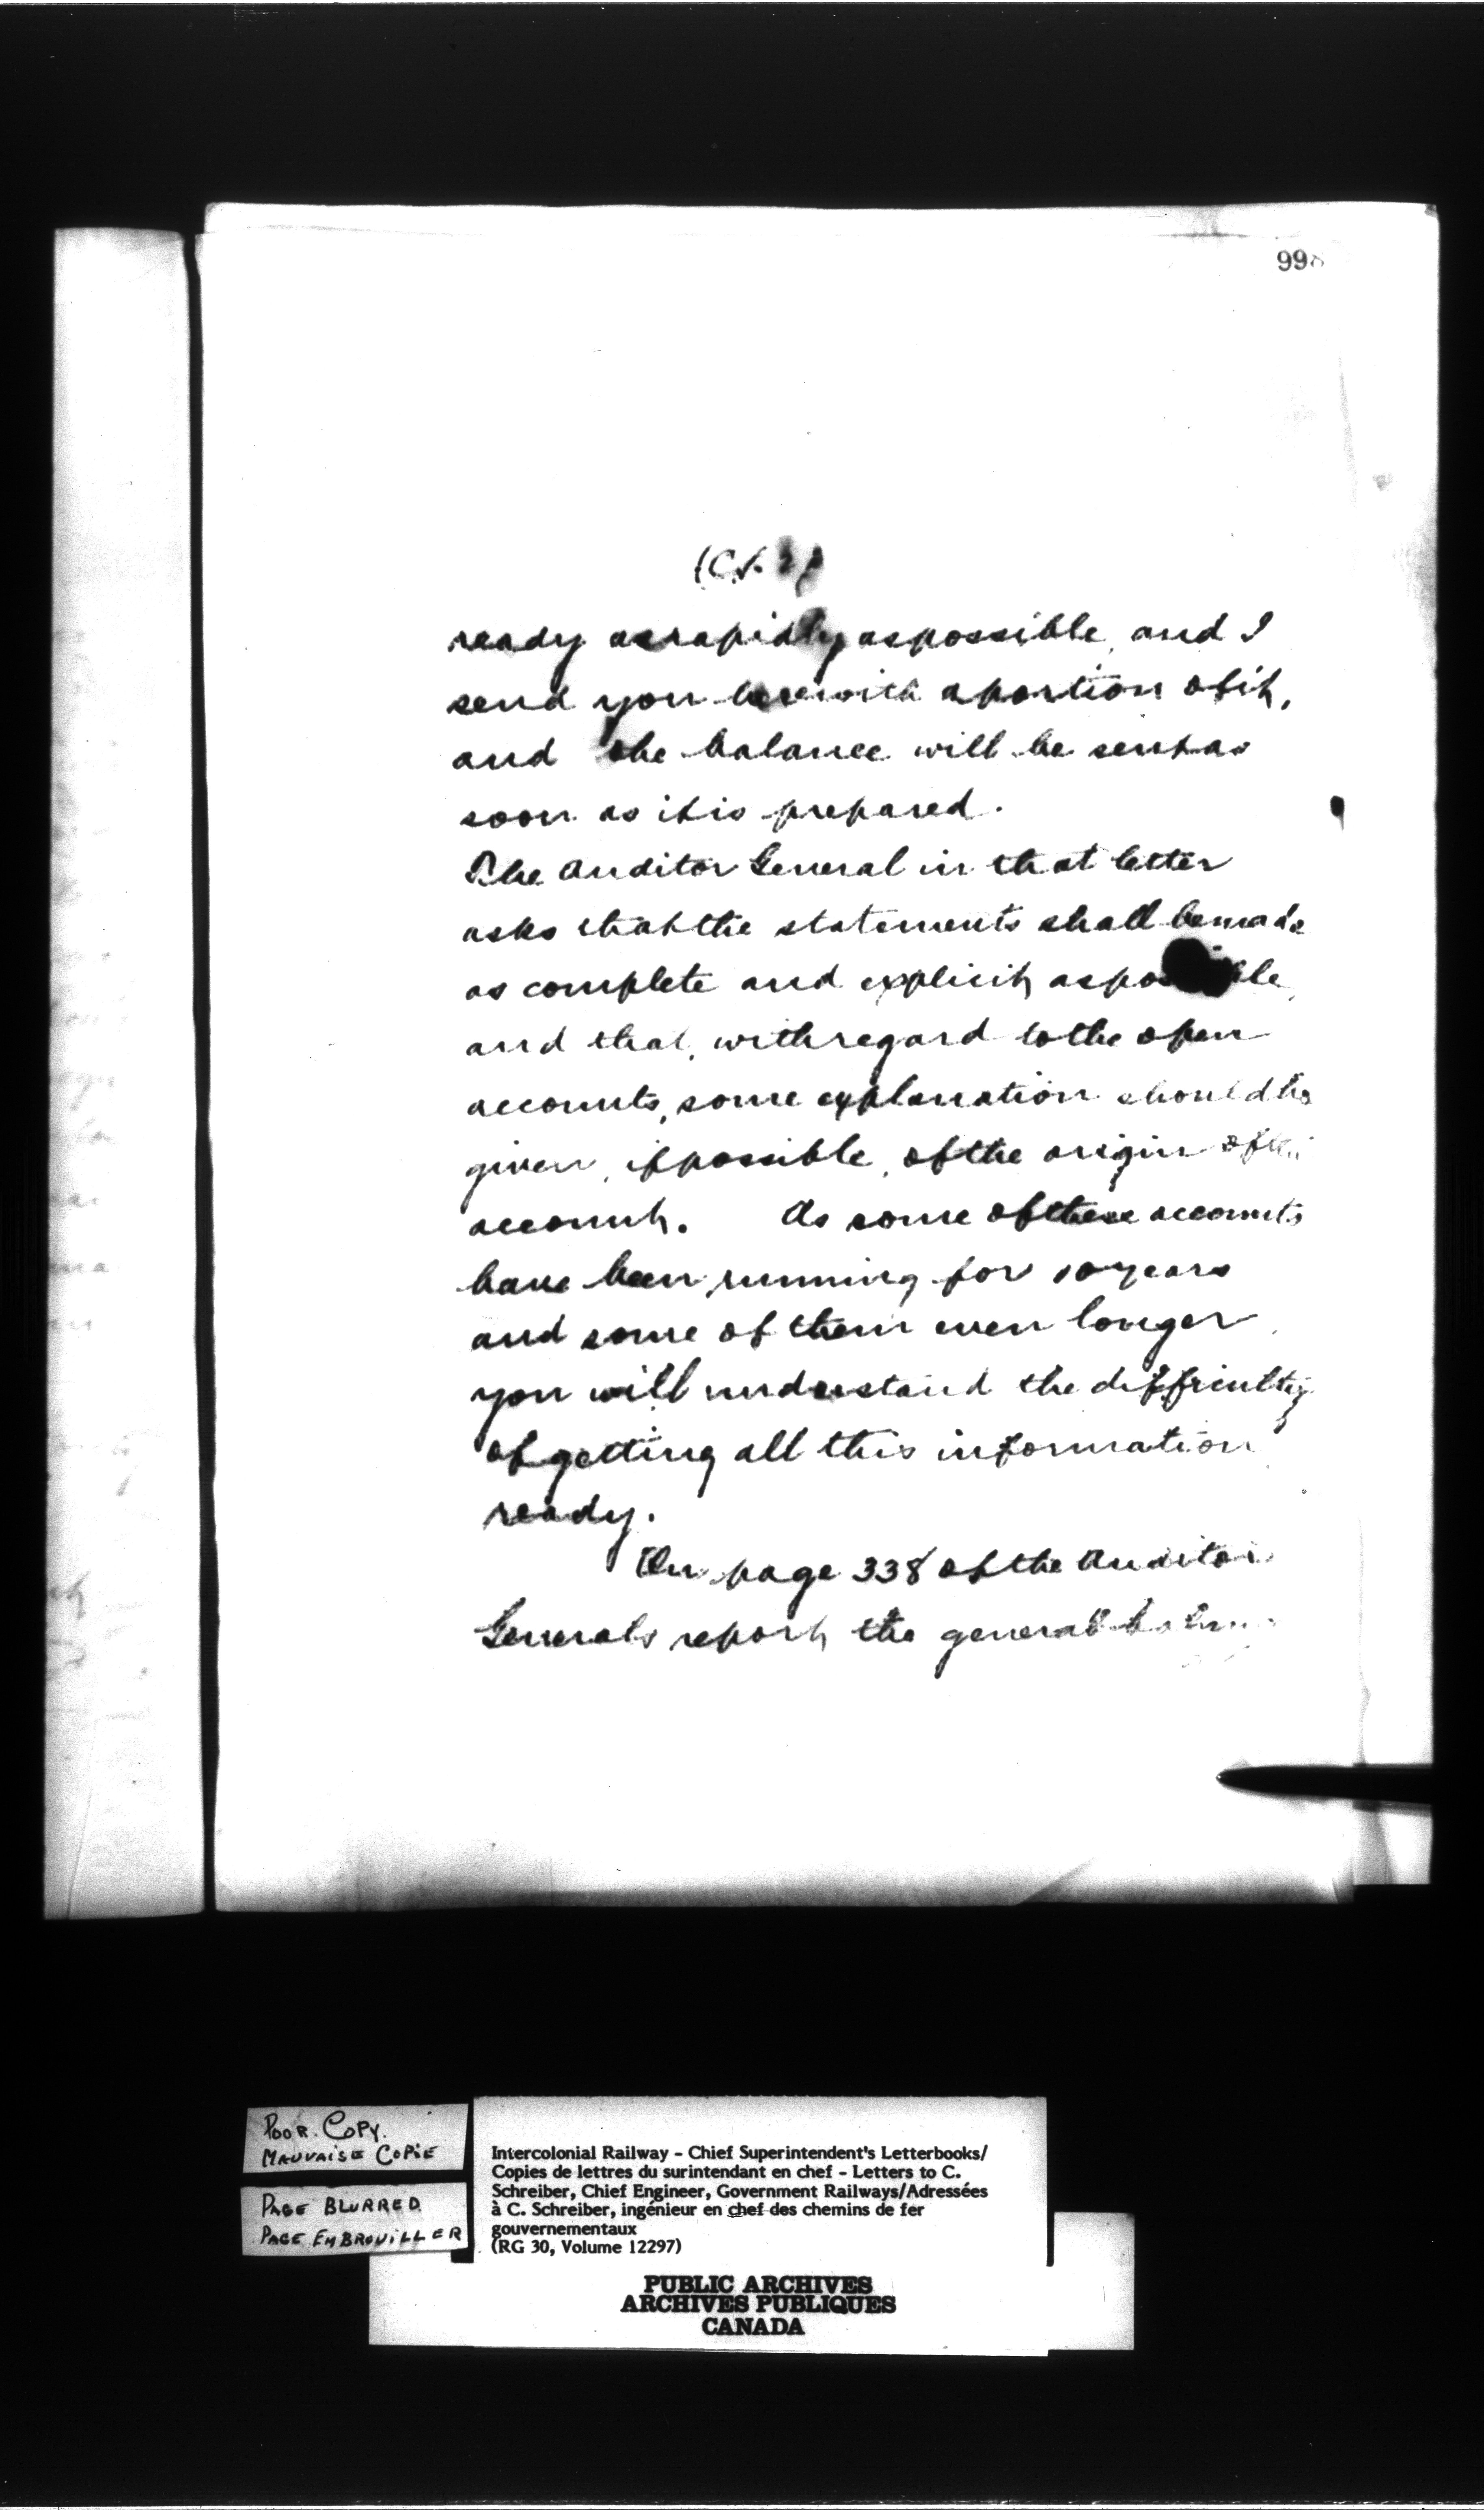 998
(C.S. 2)
ready as rapidly as possible, and I
send you herewith a portion of it,
and the balance will be sent as
soon as it is prepared.
The Auditor General in that letter
asks that the statements shall be made
as complete and explicit as possible,
and that, with regard to the open
accounts, some explanation should be
given, if possible, of the origin of the
account. As some of these accounts
have been running for 10 years
and some of them even longer,
you will understand the difficulty
of getting all this information
ready.
On page 338 of the Auditor
Generals report the general
POOR. COPY.
MAUVAISE COPIE
PAGE BLURRED
PAGE EMBROUILLER
Intercolonial Railway - Chief Superintendent's Letterbooks/
Copies de lettres du surintendant en chef - Letters to C.
Schreiber, Chief Engineer, Government Railways/Adressées
à C. Schreiber, ingénieur en chef des chemins de fer
gouvernementaux
(RG 30, Volume 12297)
PUBLIC ARCHIVES
ARCHIVES PUBLIQUES
CANADA